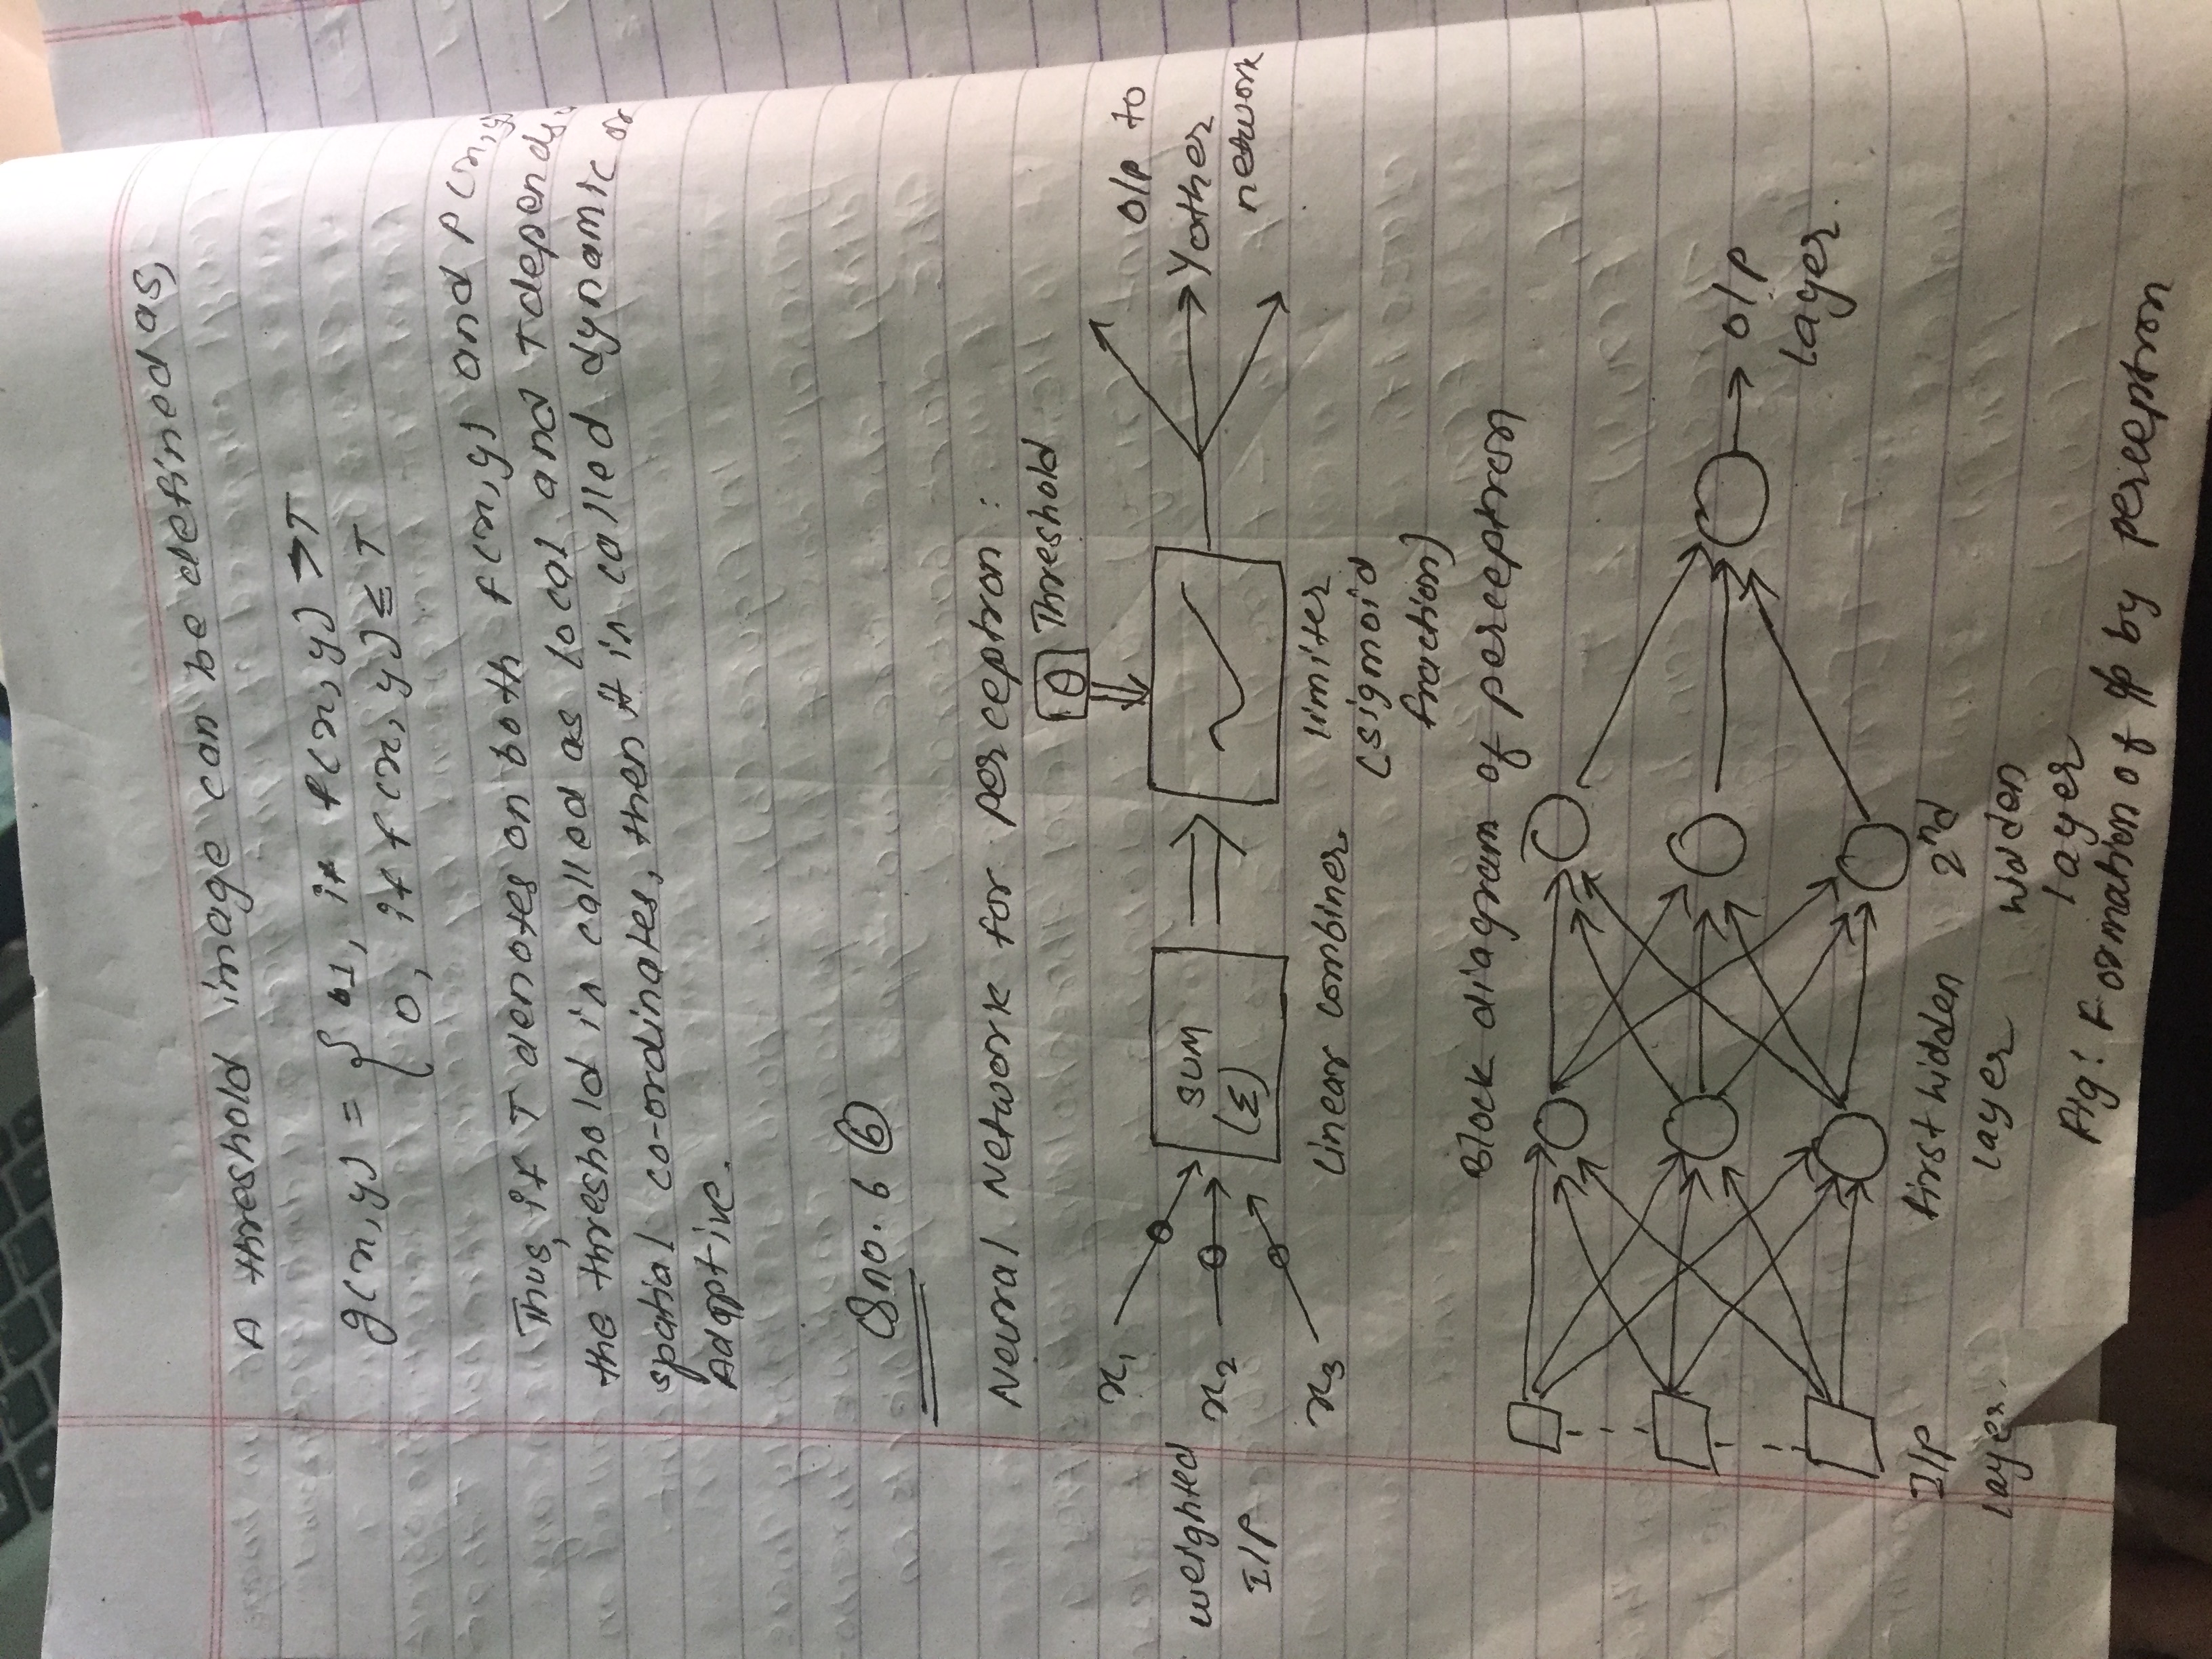 A threshold image can be defined as,
g(x,y) = { 1, if f(x,y) >T
0, if f(x,y) ≤ T
Thus, if T denotes on both f(x,y) and P(x,y)
the threshold is called as local and T depends
spatial co-ordinates, then it is called dynamic or
Adaptive.
Qno. 6 ⑥
Neural Network for perceptron :
θ Threshold
x₁
weighted
I/P
x₂
x₃
SUM
(Σ)
Linear combiner.
limiter
(sigmoid
fraction)
O/P to
Y other
network
Block diagram of perceptron
O/P
layer.
I/P
layer.
first hidden
layer
2nd
hidden
layer
Fig: Formation of by perceptron